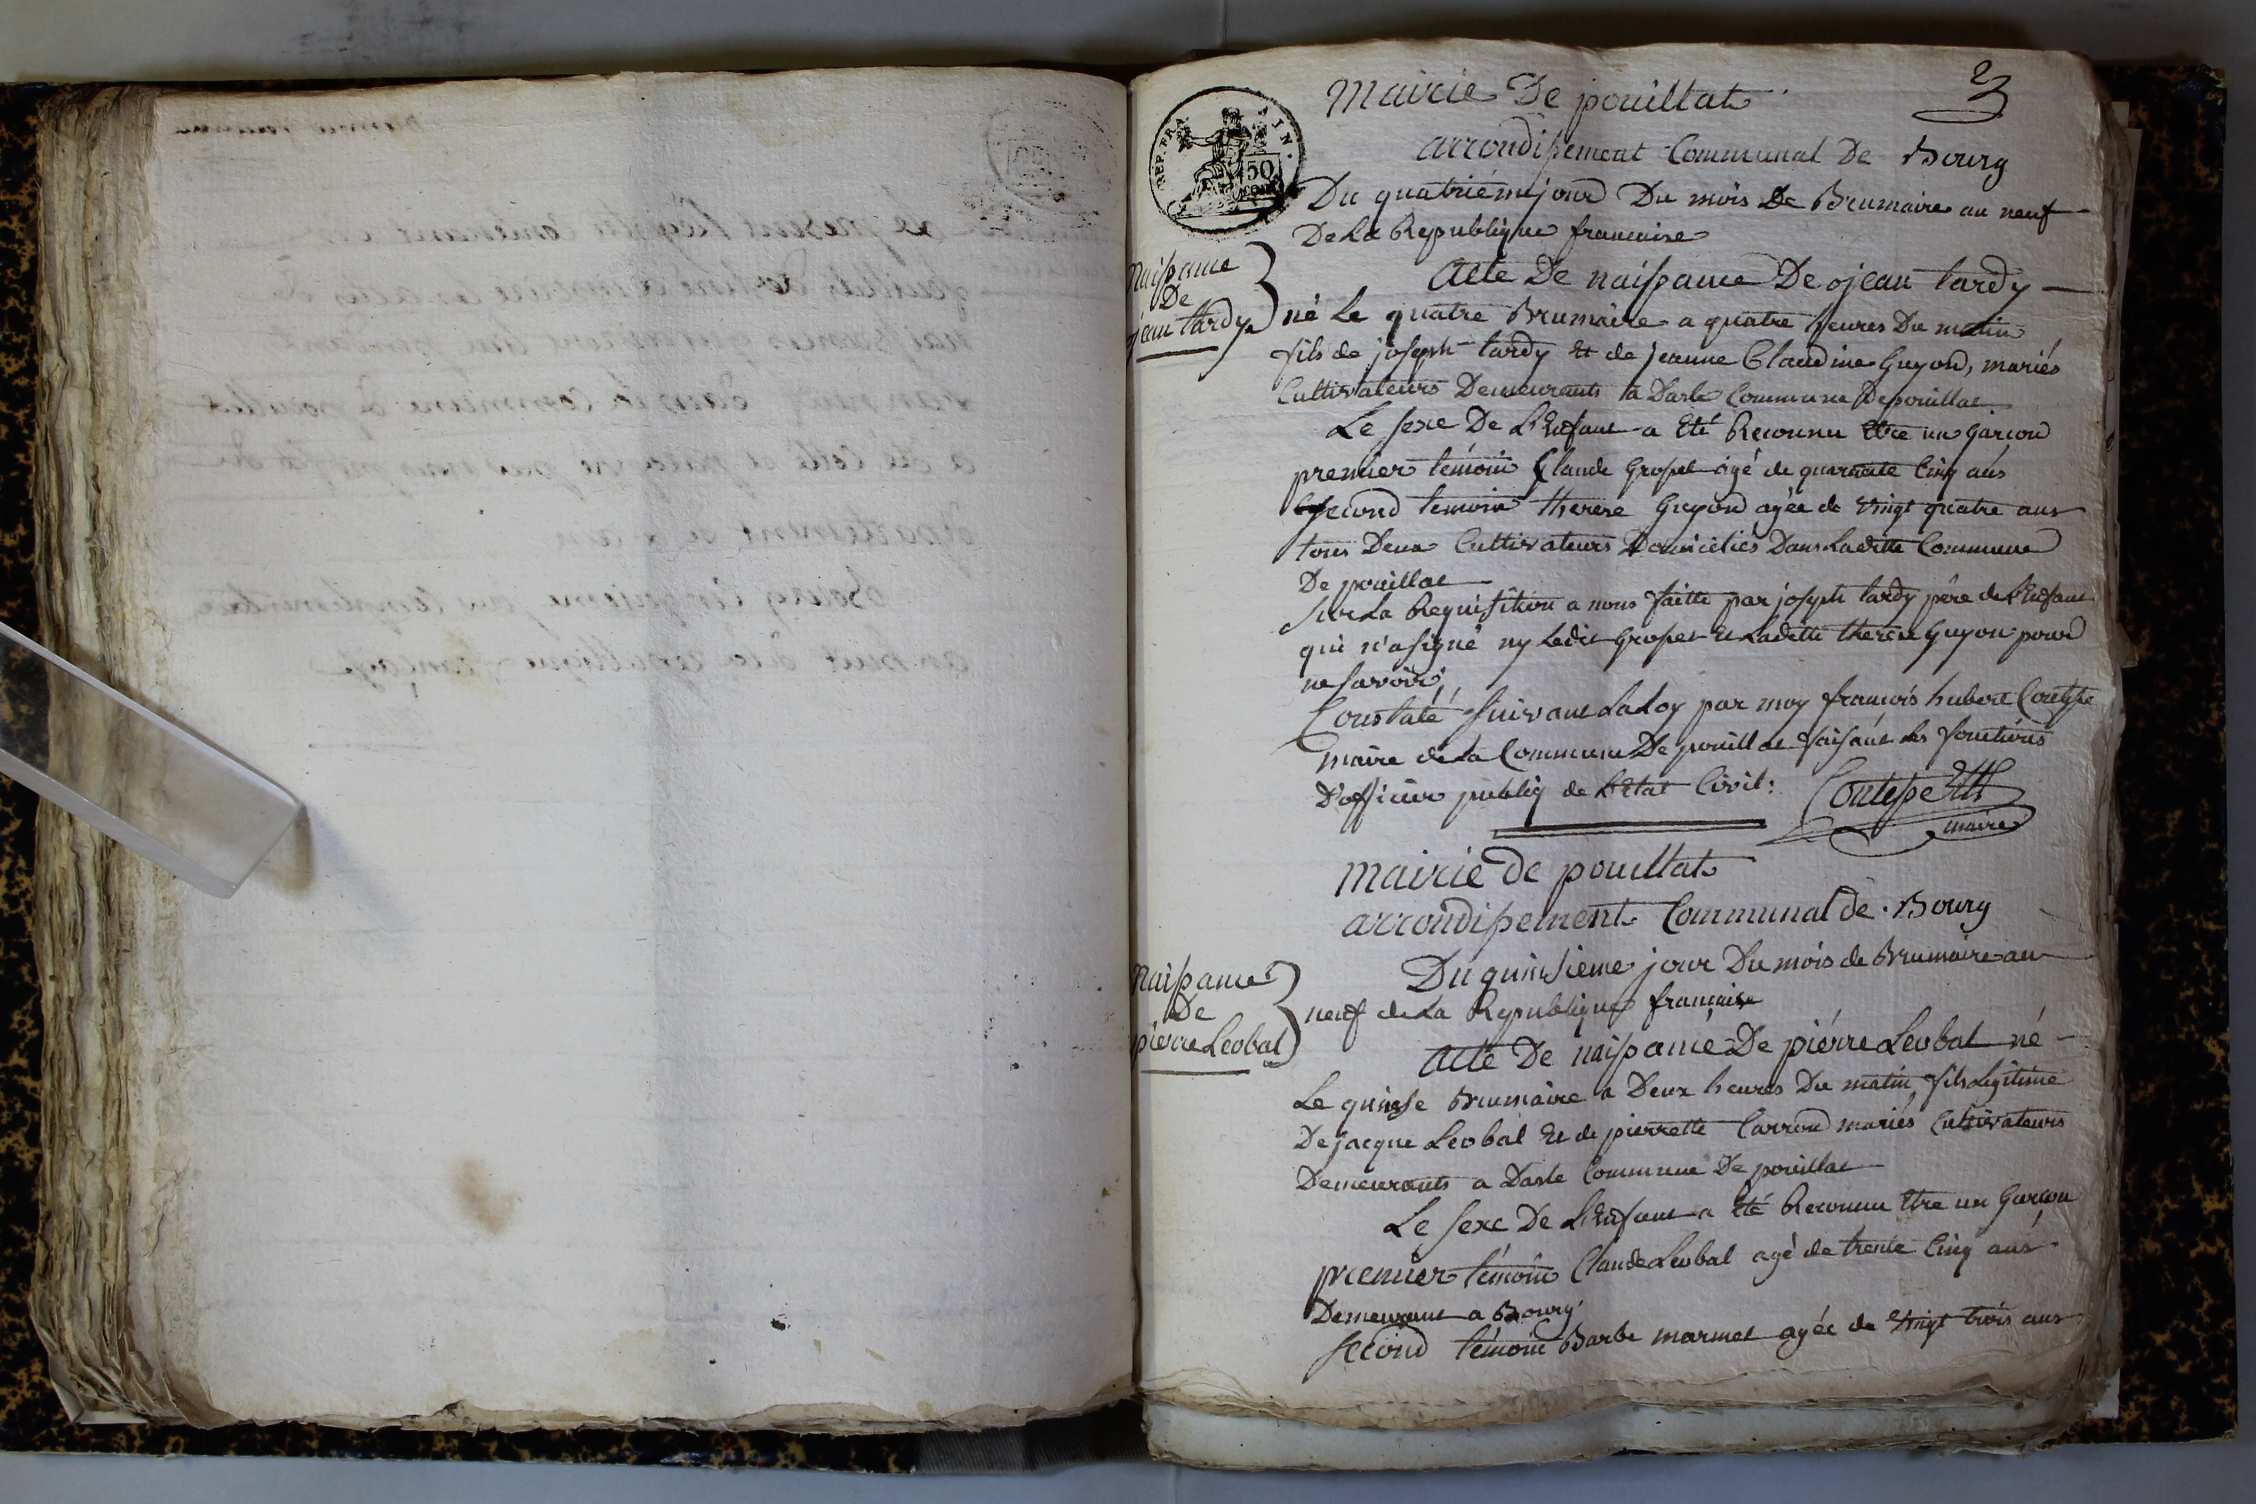 2
Mairie De pouillat
arrondissement Communal De Bourg
REP. FRA.
50
Du quatriémejour Du mois De Brumaire an neuf
De La Republique francaise
Naissance
De
jean tardy
Acte De naissance De jean tardy
né Le quatre Brumaire a quatre heures Du matin
fils de joseph tardy Et de jeanne Claudine Guyon, mariés
Cultivateurs Demeurants a Dasle Commune De pouillat
Le sexe De L'Enfant a Eté Reconnu Etre un Garcon
premier témoin Claude Grosset agé de quarante Cinq ans
second temoin therese Guyon agée de vingt quatre ans
tous Deux Cultivateurs Domiciliés Dans Laditte Commune
De pouillat
sur La Requisition a nous faitte par joseph tardy pére de L'Enfant
qui n'a signé ny Ledit Grosset Et Laditte therese Guyon pour
ne savoir
Constaté suivant La Loy par moy francois hubert
maire de La Commune De pouillat faisant les fonctions
D'officier public de L'Etat Civil:
maire
Mairie de pouillat
arrondissement Communal de Bourg
Du quinsieme jour Du mois de Brumaire an
neuf de La Republique francaise
Naissance
De
pierre Leobal
Acte De naissance De piérre Leobal né
Le quinse Brumaire a Deux heures Du matin fils Legitime
De jacque Leobal Et de pierrette Carron mariés Cultivateurs
Demeurants a Dasle Commune De pouillat
Le sexe De L'Enfant a Eté Reconnu Etre un Garcon
premier témoin Claude Leobal agé de trente Cinq ans
Demeurant a Bourg
second témoin Barbe marmet agée de vingt trois ans